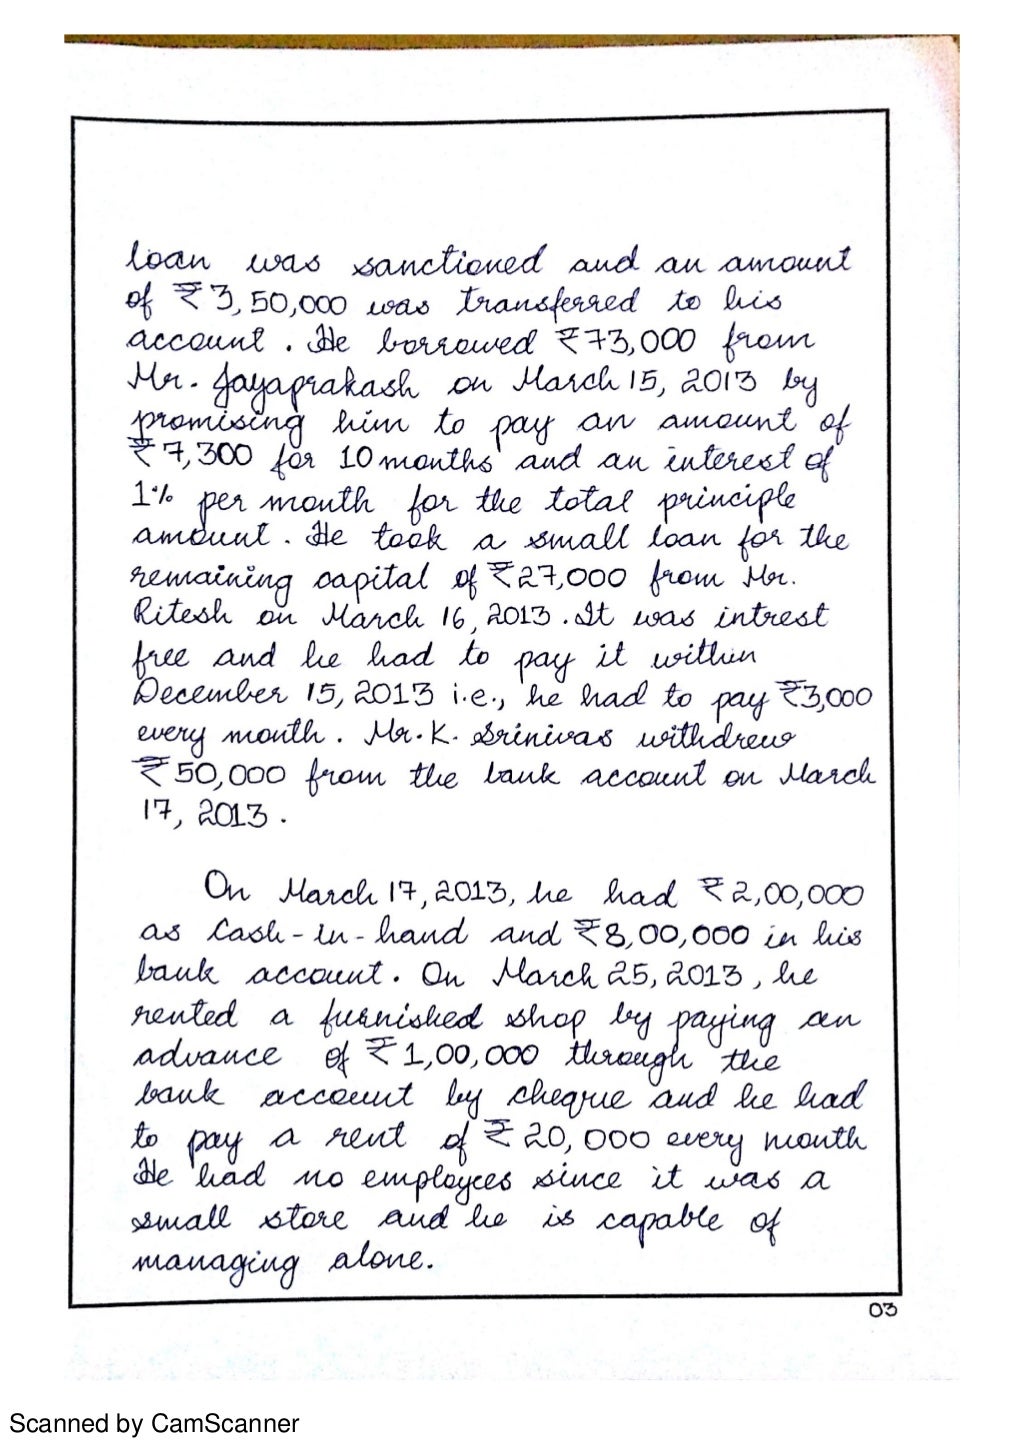 loan was sanctioned and an amount
of ₹3,50,000 was transferred to his
account. He borrowed ₹73,000 from
Mr. Jayaprakash on March 15, 2013 by
promising him to pay an amount of
₹7,300 for 10 months and an interest of
1% per month for the total principle
amount. He took a small loan for the
remaining capital of ₹27,000 from Mr.
Ritesh on March 16, 2013. It was intrest
free and he had to pay it within
December 15, 2013 i.e., he had to pay ₹3,000
every month. Mr. K. Srinivas withdrew
₹50,000 from the bank account on March
17, 2013.
On March 17, 2013, he had ₹2,00,000
as Cash-in-hand and ₹8,00,000 in his
bank account. On March 25, 2013, he
rented a furnished shop by paying an
advance of ₹1,00,000 through the
bank account by cheque and he had
to pay a rent of ₹20,000 every month
He had no employees since it was a
small store and he is capable of
managing alone.
03
Scanned by CamScanner